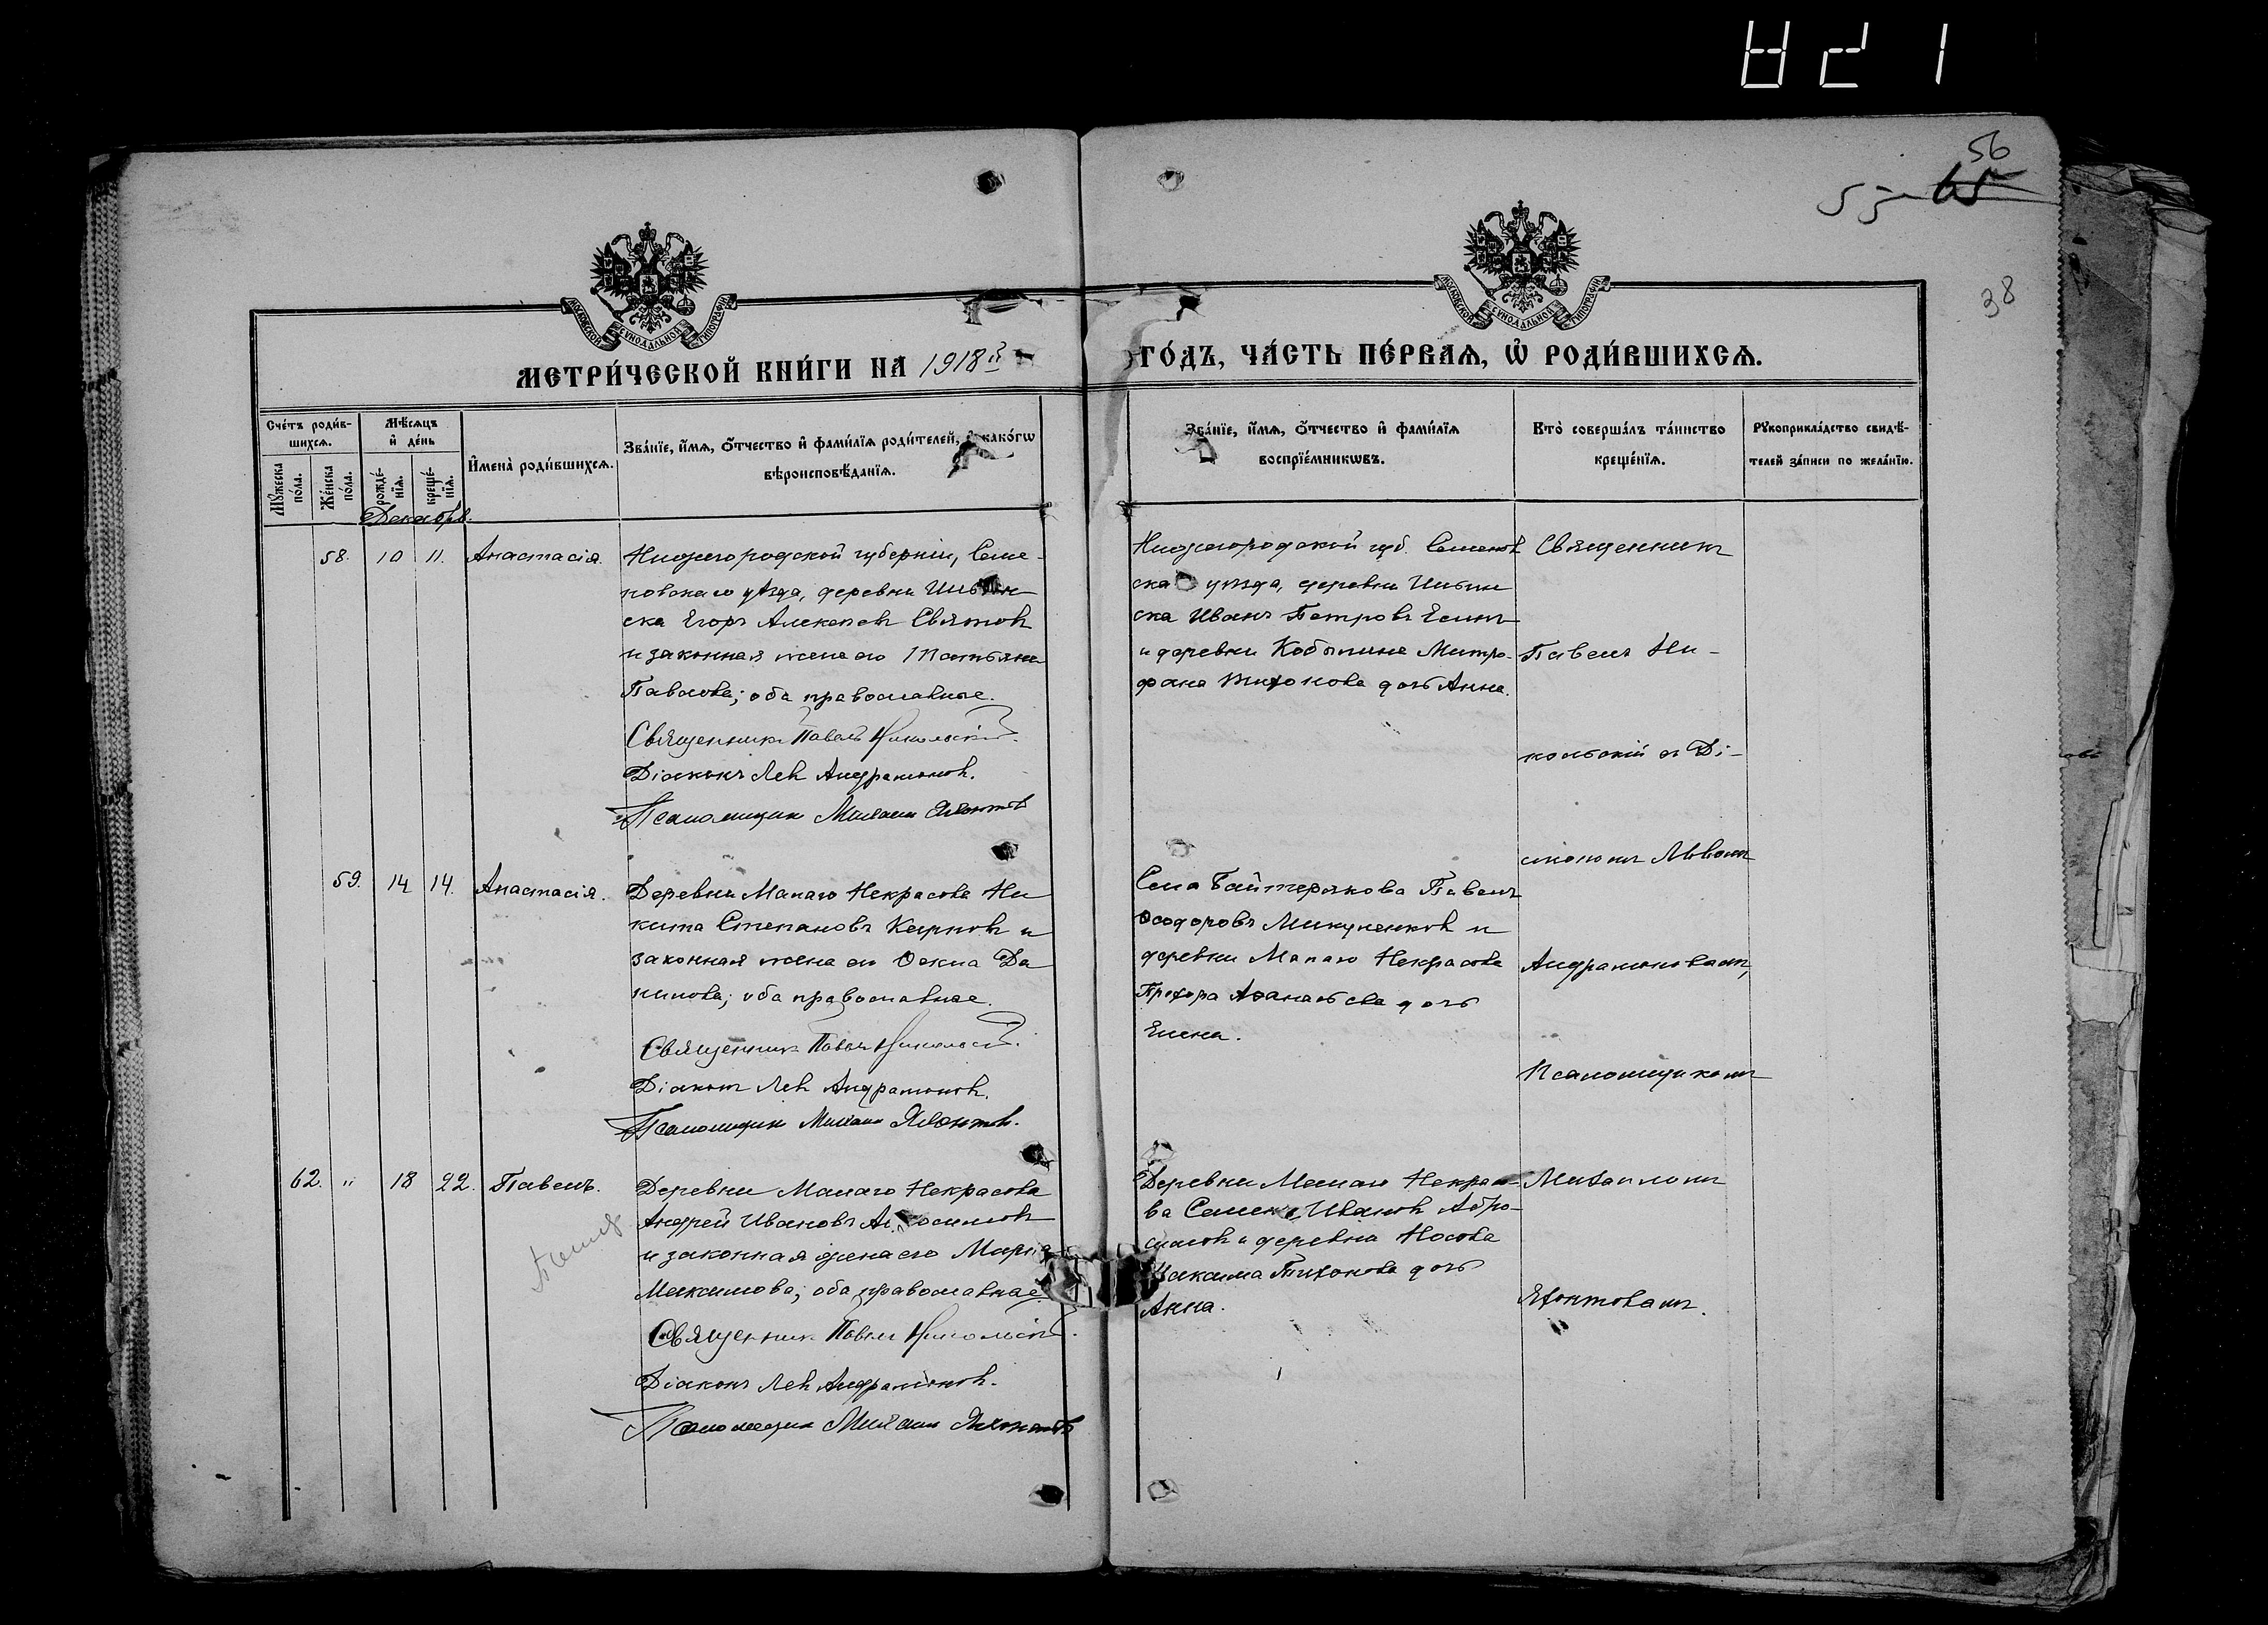 821
56
55 65
38
МОСКОВСКОЙ СѴНОДАЛЬНОЙ ТИПОГРАФІИ
МОСКОВСКОЙ СѴНОДАЛЬНОЙ ТИПОГРАФІИ
МЕТРИ́ЧЕСКОЙ КНИ́ГИ НА 1918й ГО́ДЪ, ЧА́СТЬ ПЕ́РВАѦ, Ѡ҆ РОДИ́ВШИХСѦ.
Сче́тъ роди́в-
шихсѧ.
Мꙋ́жеска
по́ла.
Же́нска
по́ла.
Мѣ́сѧцъ
и҆ де́нь
рожде́-
нїѧ.
креще́-
нїѧ.
И҆мена̀ роди́вшихсѧ.
Зва́нїе, и҆́мѧ, ѻ҆́тчество и҆ фами́лїѧ роди́телей, и҆ како́гѡ
вѣроисповѣ́данїѧ.
Зва́нїе, и҆́мѧ, ѻ҆́тчество и҆ фами́лїѧ
воспрїе́мникѡвъ.
Кто̀ соверша́лъ та́инство
креще́нїѧ.
Рꙋкоприкла́дство свидѣ́-
телей за́писи по жела́нїю.
Декабрь.
58. 10 11. Анастасія.
Нижегородской губерніи, Семе-
новскаго уѣзда, деревни
ска Егоръ Алексѣевъ Святовъ
и законная жена его Татьяна
Павлова; оба православные.
Священникъ Павелъ Никольскій.
Діаконъ Левъ Андрамоновъ.
Псаломщикъ Михаилъ Яхонтовъ
Нижегородской губ. Семенов
скаго уѣзда, деревни
ска Иванъ Петровъ Есинъ
и деревни Кобылина Митро-
фана Тихонова дочь Анна.
Священникъ
Павелъ Ни-
кольскій съ Ді-
акономъ Львомъ
Андрамоновымъ,
Псаломщикомъ
Михаиломъ
Яхонтовымъ.
59. 14 14. Анастасія.
Деревни Малаго Некрасова Ни
кита Степановъ Карповъ и
законная жена его Ѳекла Да
нилова; оба православные.
Священникъ Павелъ Никольскій.
Діаконъ Левъ Андрамоновъ.
Псаломщикъ Михаилъ Яхонтовъ.
Села Байтерякова Павелъ
Ѳеодоровъ Микуненковъ и
деревни Малаго Некрасова
Прохора Аѳанасьева дочь
Елена.
62. " 18 22. Павелъ.
Деревни Малаго Некрасова
Андрей Ивановъ
и законная жена его Марія
Максимова; оба православные.
Священникъ Павелъ Никольскій.
Діаконъ Левъ Андрамоновъ.
Псаломщикъ Михаилъ Яхонтовъ
Деревни Малаго Некрасо-
ва Семенъ Ивановъ Абро-
симовъ и деревни Носова
Максима Тихонова дочь
Анна.